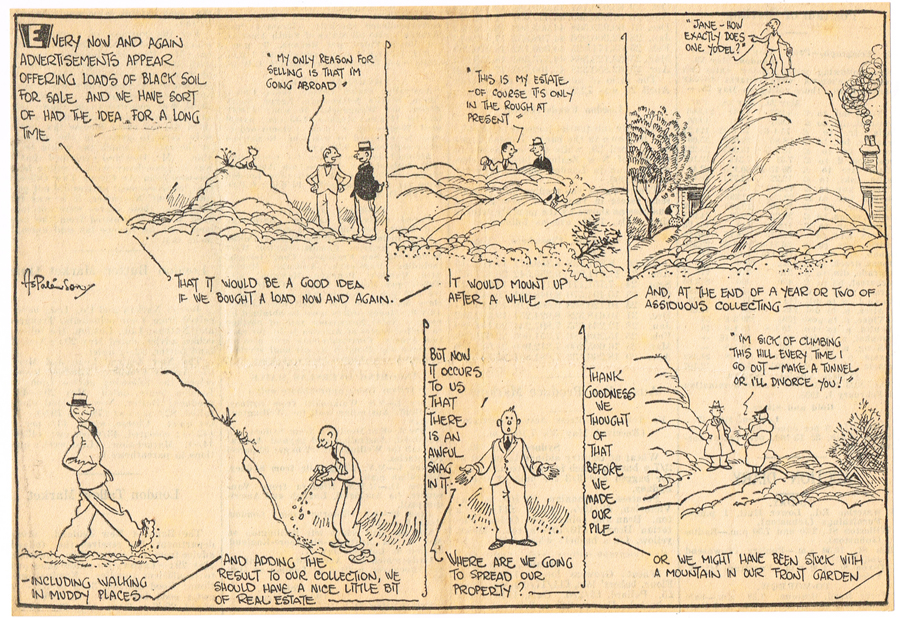 EVERY NOW AND AGAIN
ADVERTISEMENTS APPEAR
OFFERING LOADS OF BLACK SOIL
FOR SALE AND WE HAVE SORT
OF HAD THE IDEA FOR A LONG
TIME
"MY ONLY REASON FOR
SELLING IS THAT I'M
GOING ABROAD"
THAT IT WOULD BE A GOOD IDEA
IF WE BOUGHT A LOAD NOW AND AGAIN.
"THIS IS MY ESTATE
- OF COURSE IT'S ONLY
IN THE ROUGH AT
PRESENT"
IT WOULD MOUNT UP
AFTER A WHILE
"JANE - HOW
EXACTLY DOES
ONE YODEL?"
AND, AT THE END OF A YEAR OR TWO OF
ASSIDUOUS COLLECTING
-INCLUDING WALKING
IN MUDDY PLACES
AND ADDING THE
RESULT TO OUR COLLECTION, WE
SHOULD HAVE A NICE LITTLE BIT
OF REAL ESTATE
BUT NOW
IT OCCURS
TO US
THAT
THERE
IS AN
AWFUL
SNAG
IN IT.
WHERE ARE WE GOING
TO SPREAD OUR
PROPERTY?
THANK
GOODNESS
WE
THOUGHT
OF
THAT
BEFORE
WE
MADE
OUR
PILE
"I'M SICK OF CLIMBING
THIS HILL EVERY TIME I
GO OUT - MAKE A TUNNEL
OR I'LL DIVORCE YOU!"
OR WE MIGHT HAVE BEEN STUCK WITH
A MOUNTAIN IN OUR FRONT GARDEN